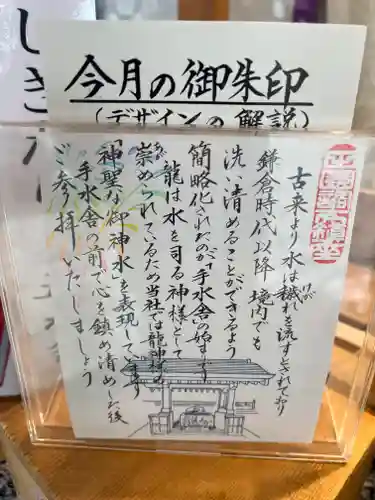 今月の御朱印
(デザインの解説)
古来より水は穢れを流すとされており
けが
鎌倉時代以降 境内でも
洗い清めることができるよう
簡略化されたのが「手水舎」の始まりです
龍は水を司る神様として
崇められているため当社では龍神様の
あが
「神聖な御神水を表現しています
手水舎の前で心を鎮め清めした後
ご参拝いたしましょう